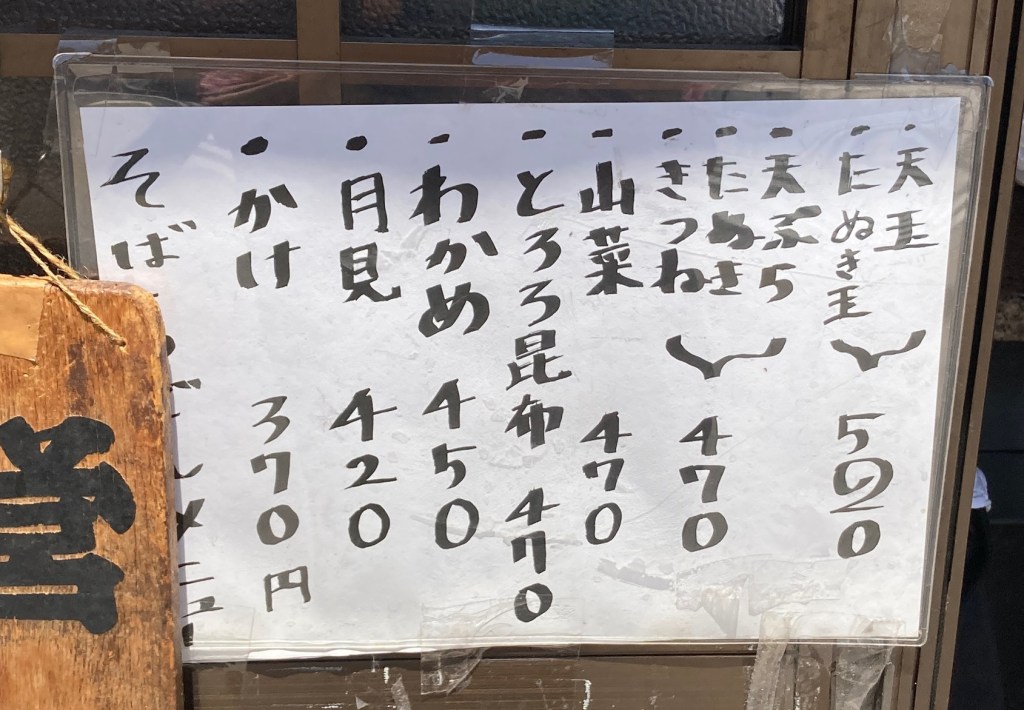 そば・うどんメニュー
・かけ 370円
・月見 420
・わかめ 450
・とろろ昆布 470
・山菜 470
・きつね
・たぬき
・天ぷら
470
・たぬき玉
・天玉
520